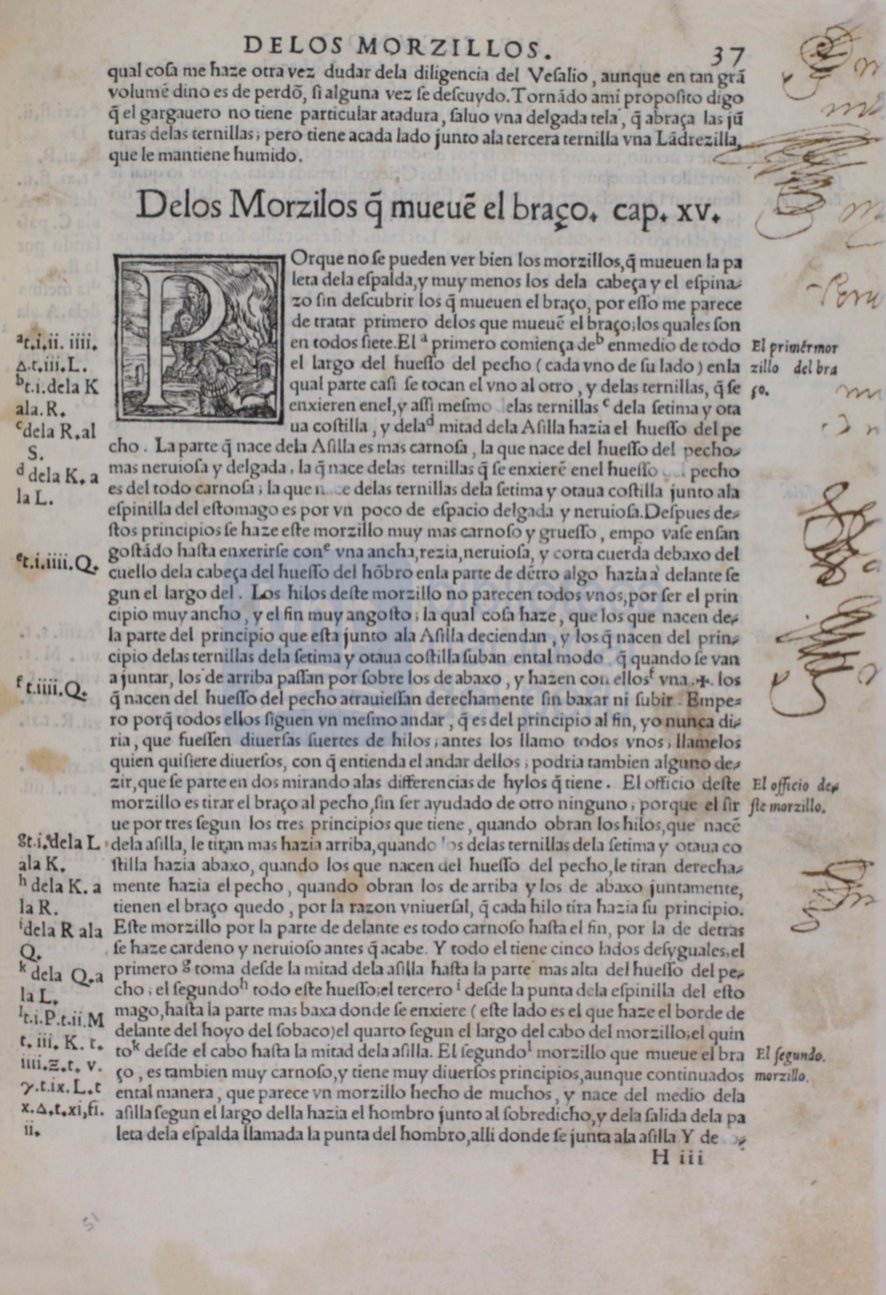 DELOS MORZILLOS.
37
qual cosa me haze otra vez dudar dela diligencia del Vesalio, aunque en tan grã
volumẽ dino es de perdõ, si alguna vez se descuydo. Tornãdo ami proposito digo
q̃ el gargauero no tiene particular atadura, saluo vna delgada tela, q̃ abraça las jũ
turas delas ternillas; pero tiene acada lado junto ala tercera ternilla vna Lãdrezilla,
que le mantiene humido.
Delos Morzilos q̃ mueuẽ el braço. cap. xv.
POrque no se pueden ver bien los morzillos, q̃ mueuen la pa
leta dela espalda, y muy menos los dela cabeça y el espina-
zo sin descubrir los q̃ mueuen el braço, por esso me parece
de tratar primero delos que mueuẽ el braço; los quales son
en todos siete. El a primero comiença de b enmedio de todo
el largo del huesso del pecho (cada vno de su lado) enla
qual parte casi se tocan el vno al otro, y delas ternillas, q̃ se
enxieren enel, y assi mesmo elas ternillas c dela setima y ota
ua costilla, y dela d mitad dela Asilla hazia el huesso del pe
cho. La parte q̃ nace dela Asilla es mas carnosa, la que nace del huesso del pecho
mas neruiosa y delgada, la q̃ nace delas ternillas q̃ se enxierẽ enel huesso pecho
es del todo carnosa; la que n e delas ternillas dela setima y otaua costilla junto ala
espinilla del estomago es por vn poco de espacio delgada y neruiosa. Despues de-
stos principios se haze este morzillo muy mas carnoso y gruesso, empo vase ensan
gostãdo hasta enxerirse con e vna ancha, rezia, neruiosa, y corta cuerda debaxo del
cuello dela cabeça del huesso del hõbro enla parte de dẽtro algo hazia a delante se
gun el largo del. Los hilos deste morzillo no parecen todos vnos, por ser el prin
cipio muy ancho, y el fin muy angosto; la qual cosa haze, que los que nacen de-
la parte del principio que esta junto ala Asilla deciendan, y los q̃ nacen del prin-
cipio delas ternillas dela setima y otaua costilla suban ental modo q̃ quando se van
a juntar, los de arriba passan por sobre los de abaxo, y hazen con ellos f vna .✠. los
q̃ nacen del huesso del pecho atrauiessan derechamente sin baxar ni subir. Empe-
ro porq̃ todos ellos siguen vn mesmo andar, q̃ es del principio al fin, yo nunca di-
ria, que fuessen diuersas suertes de hilos; antes los llamo todos vnos; llamelos
quien quisiere diuersos, con q̃ entienda el andar dellos; podria tambien alguno de-
zir, que se parte en dos mirando alas differencias de hylos q̃ tiene. El officio deste
morzillo es tirar el braço al pecho, sin ser ayudado de otro ninguno; porque el sir
ue por tres segun los tres principios que tiene, quando obran los hilos, que nacẽ
dela asilla, le tiran mas hazia arriba, quando os delas ternillas dela setima y otaua co
stilla hazia abaxo, quando los que nacen del huesso del pecho, le tiran derecha-
mente hazia el pecho, quando obran los de arriba y los de abaxo juntamente,
tienen el braço quedo, por la razon vniuersal, q̃ cada hilo tira hazia su principio.
Este morzillo por la parte de delante es todo carnoso hasta el fin, por la de detras
se haze cardeno y neruioso antes q̃ acabe. Y todo el tiene cinco lados desyguales; el
primero g toma desde la mitad dela asilla hasta la parte mas alta del huesso del pe-
cho; el segundo h todo este huesso; el tercero i desde la punta dela espinilla del esto
mago, hasta la parte mas baxa donde se enxiere (este lado es el que haze el borde de
delante del hoyo del sobaco) el quarto segun el largo del cabo del morzillo; el quin
to k desde el cabo hasta la mitad dela asilla. El segundo l morzillo que mueue el bra
ço, es tambien muy carnoso, y tiene muy diuersos principios, aunque continuados
ental manera, que parece vn morzillo hecho de muchos, y nace del medio dela
asilla segun el largo della hazia el hombro junto al sobredicho, y dela salida dela pa
leta dela espalda llamada la punta del hombro, alli donde se junta ala asilla Y de
H iii
a t.i.ii. iiii.
Δ.t.iii.L.
b t.i.dela K
ala. R.
c dela R. al
S.
d dela K. a
la L.
e t.i.iiii.Q.
f t.iiii.Q.
g t.i. dela L
ala K.
h dela K. a
la R.
i dela R ala
Q.
k dela Q. a
la L.
l t.i.P.t.ii.M
t. iii. K. t.
iiii.Ξ.t. v.
γ.t.ix.L.t
x.Δ.t.xi,fi.
ii.
El primer mor
zillo del bra
ço.
El officio de-
ste morzillo.
El segundo.
morzillo.
51